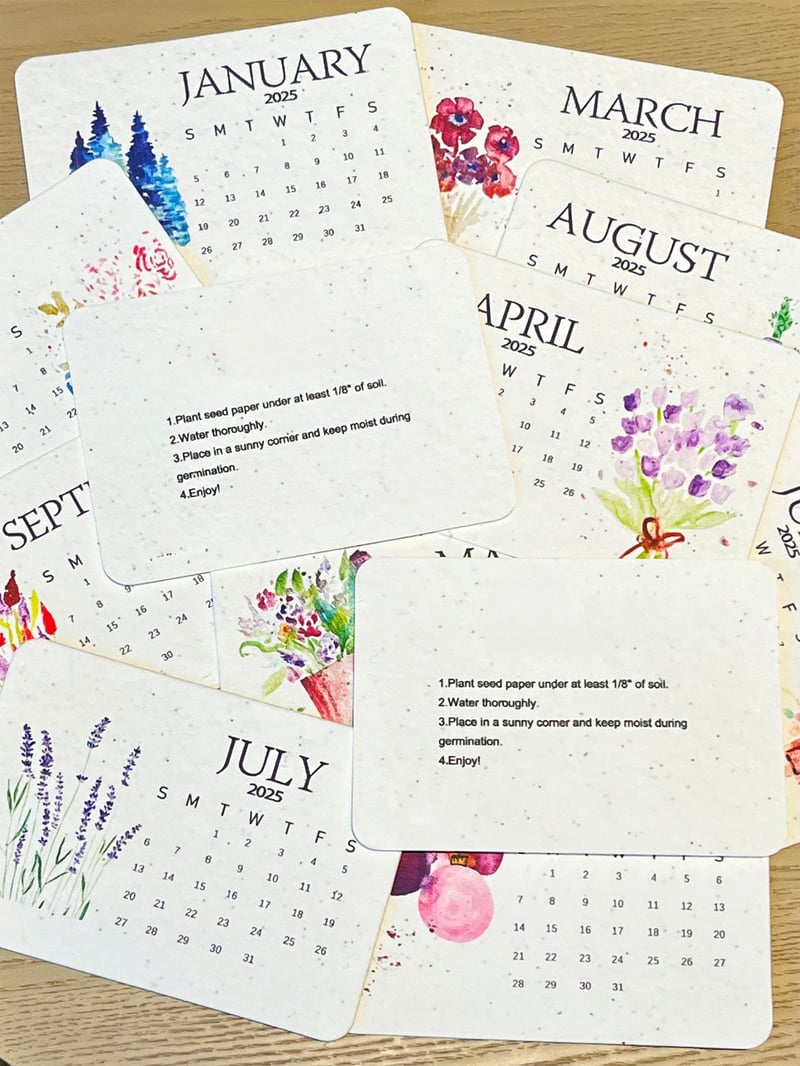 JANUARY
2025
S M T W T F S
1 2 3 4
5 6 7 8 9 10 11
12 13 14 15 16 17 18
19 20 21 22 23 24 25
26 27 28 29 30 31
MARCH
2025
S M T W T F S
1
AUGUST
2025
S M T W T F S
APRIL
2025
W T F S
2 3 4 5
10 11 12
17 18 19
25 26
S
1
7 8
13 14 15 22
20 21
1.Plant seed paper under at least 1/8" of soil.
2.Water thoroughly.
3.Place in a sunny corner and keep moist during
germination.
4.Enjoy!
SEPT
S M
1
7 8 9
14 15 16 17 18
22 23 24
30
W
F
1.Plant seed paper under at least 1/8" of soil.
2.Water thoroughly.
3.Place in a sunny corner and keep moist during
germination.
4.Enjoy!
JULY
2025
S M T W T F S
1 2 3 4 5
6 7 8 9 10 11 12
13 14 15 16 17 18 19
20 21 22 23 24 25 26
27 28 29 30 31
1 2 3 4 5 6
7 8 9 10 11 12 13
14 15 16 17 18 19 20
21 22 23 24 25 26 27
28 29 30 31